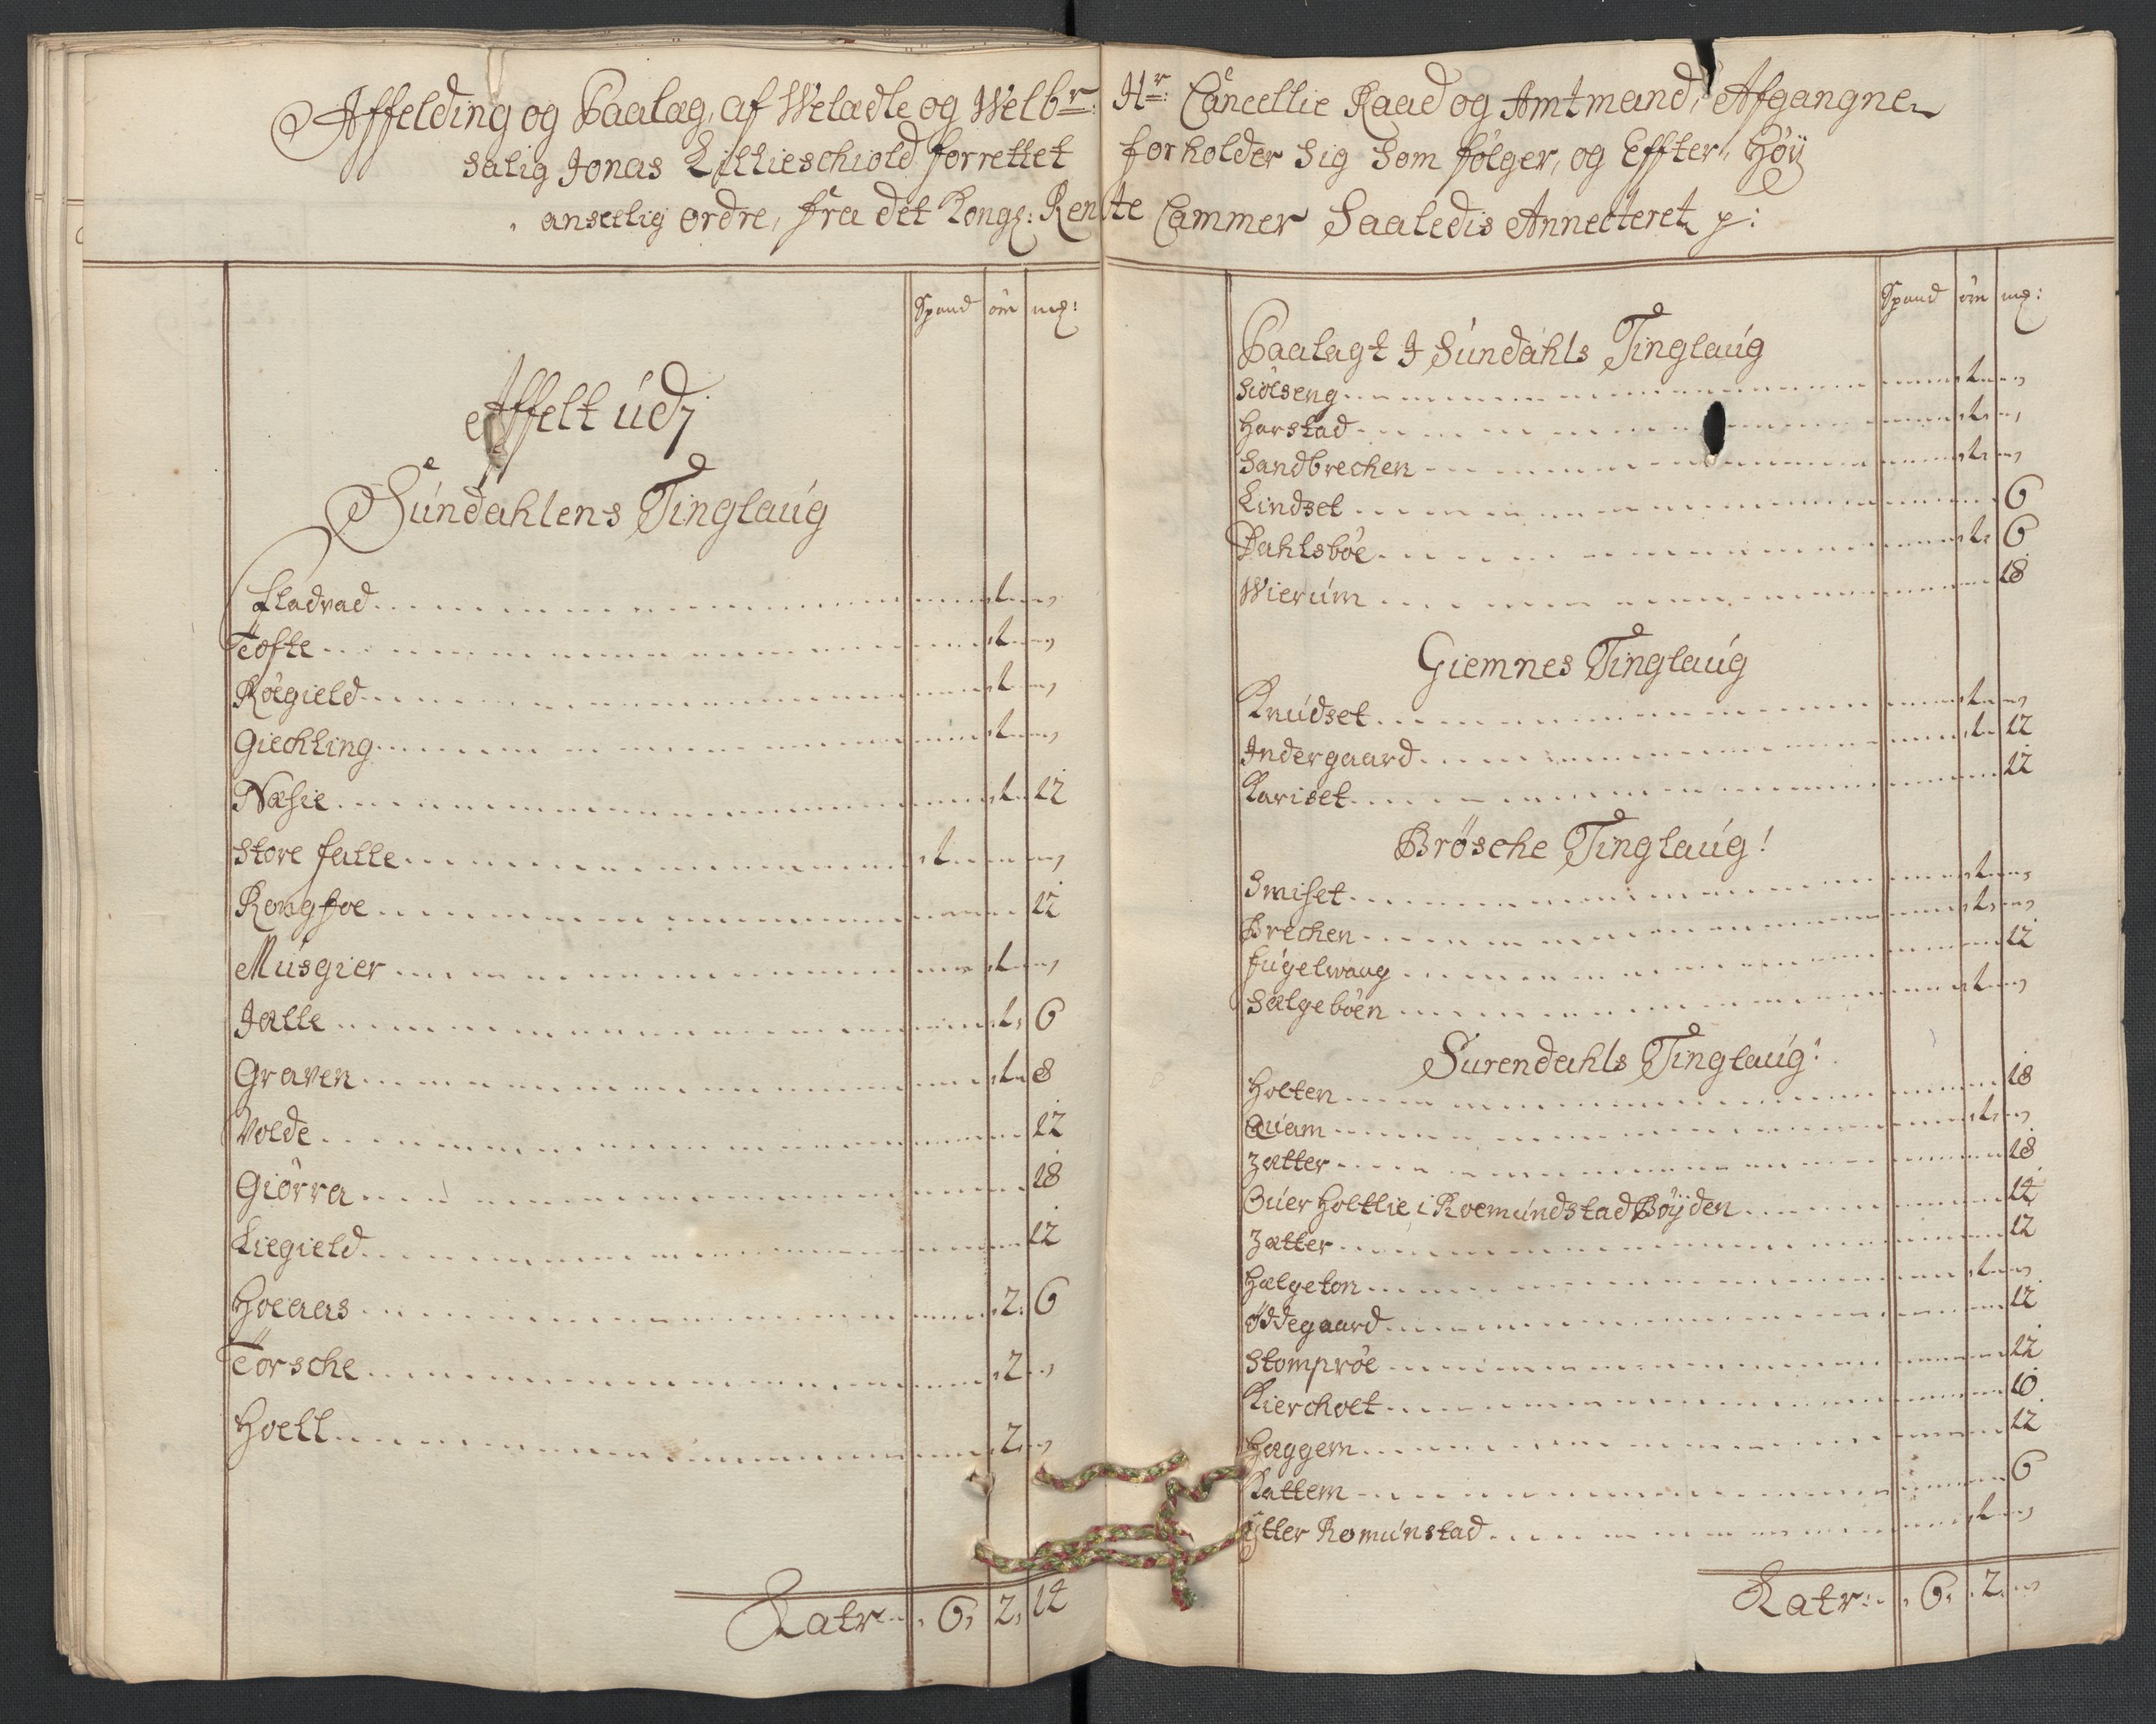 Affelding og Paalag, af Welædle og Welbr: Hr: Cancellie Raad og Amtmand, Afgangne
salig Jonas Lillieschiold forrettet forholder Sig Som følger, og Effter, Høÿ
anseelig ordre, fra det Kongl: Rente Cammer Saaledis Annecteret p:
Spand øre mgl:
Affelt udj
Sundahlens Tinglaug
Fladvad 1
Tofte 1
Røegield 1
Giechling 1
Næsie 1 12
Store Falle 1
Rongfoe 12
Musgier 1
Jalle 1 6
Graven 1 8
Volde 12
Giörra 18
Liegield 12
Hoeaas 2 6
Torsche 2
Hoell 2
Latr 6 2 14
Spand øre mgl:
Paalagt I Sundahls Tinglaug
Siölseng 1
Harstad 1
Sandbrechen 1
Lindset 6
Dahlsböe 1 6
Wierum 18
Giemnes Tinglaug
Knudset 1
Indergaard 1 12
Kariset 12
Brösche Tinglaug!
Smiset 1
Brechen 1
Fugelwaag 12
Sælgeböen 1
Surendahls Tinglaug:
Holten 18
Quam 1
Zætter 18
Öuer Holtlie i Roemundstad Böÿden 14
Zætter 12
Hælgeton 1
Ödegaard 12
Stompröe 12
Kiercholt 10
Hæggem 12
Kattem 6
Ÿtter Romunstad 1
Latr: 6 2